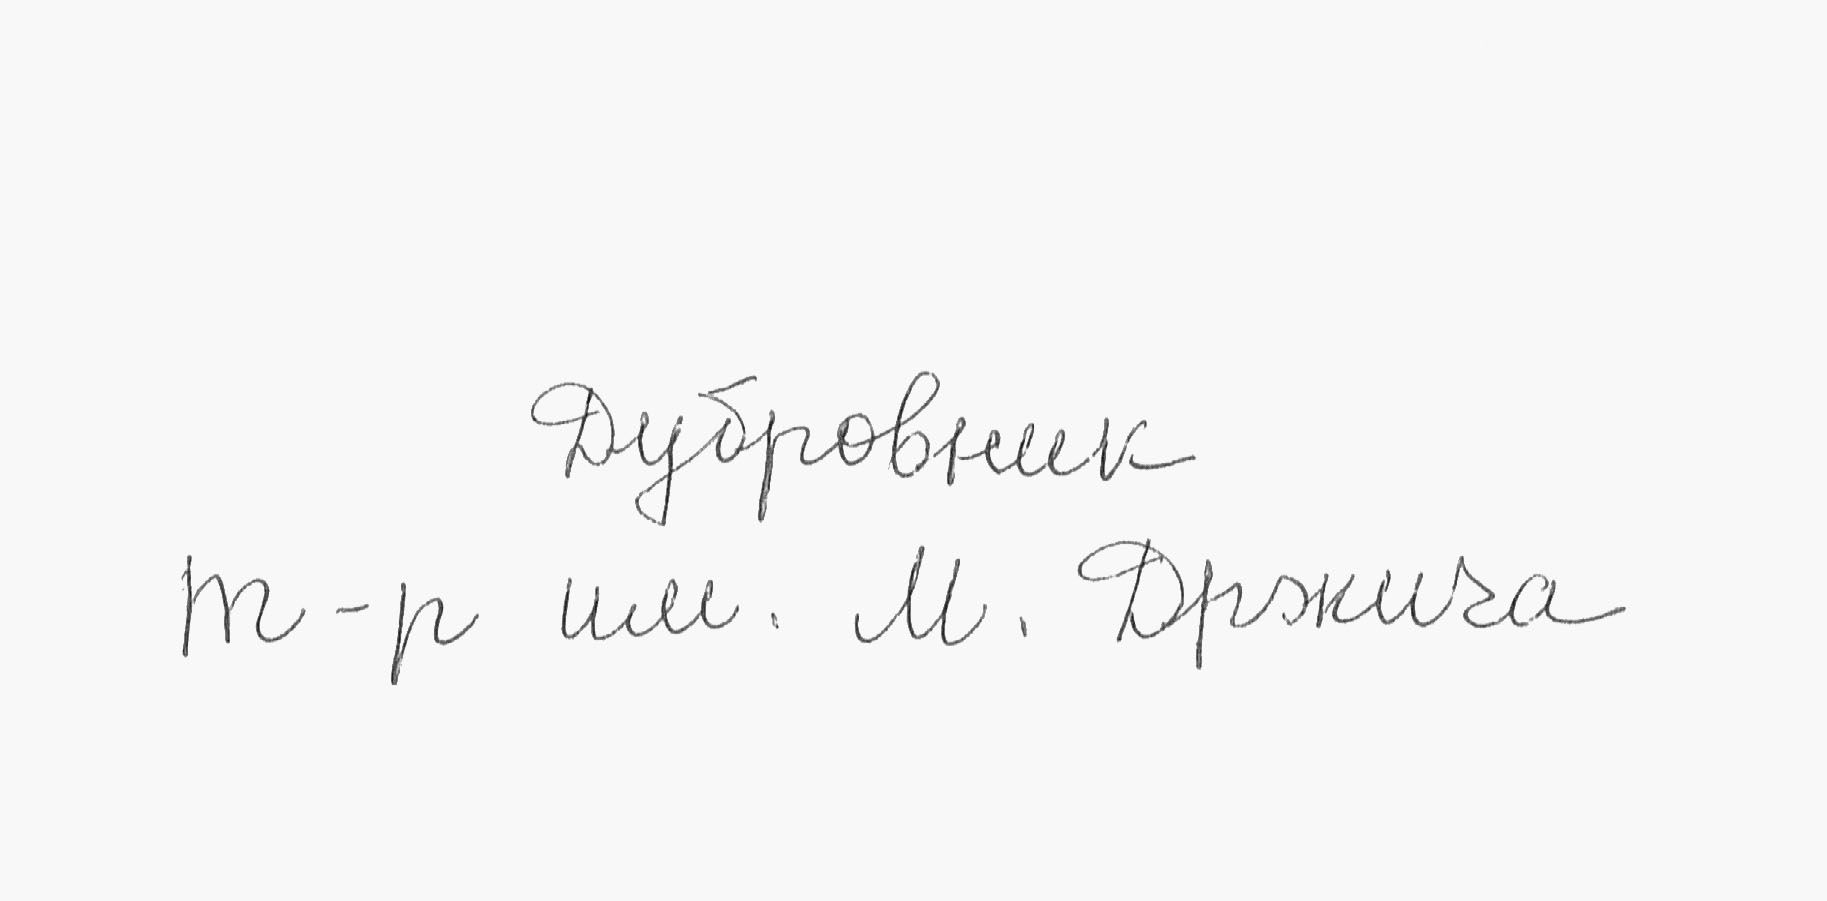 Дубровник
т-р им. М. Држича